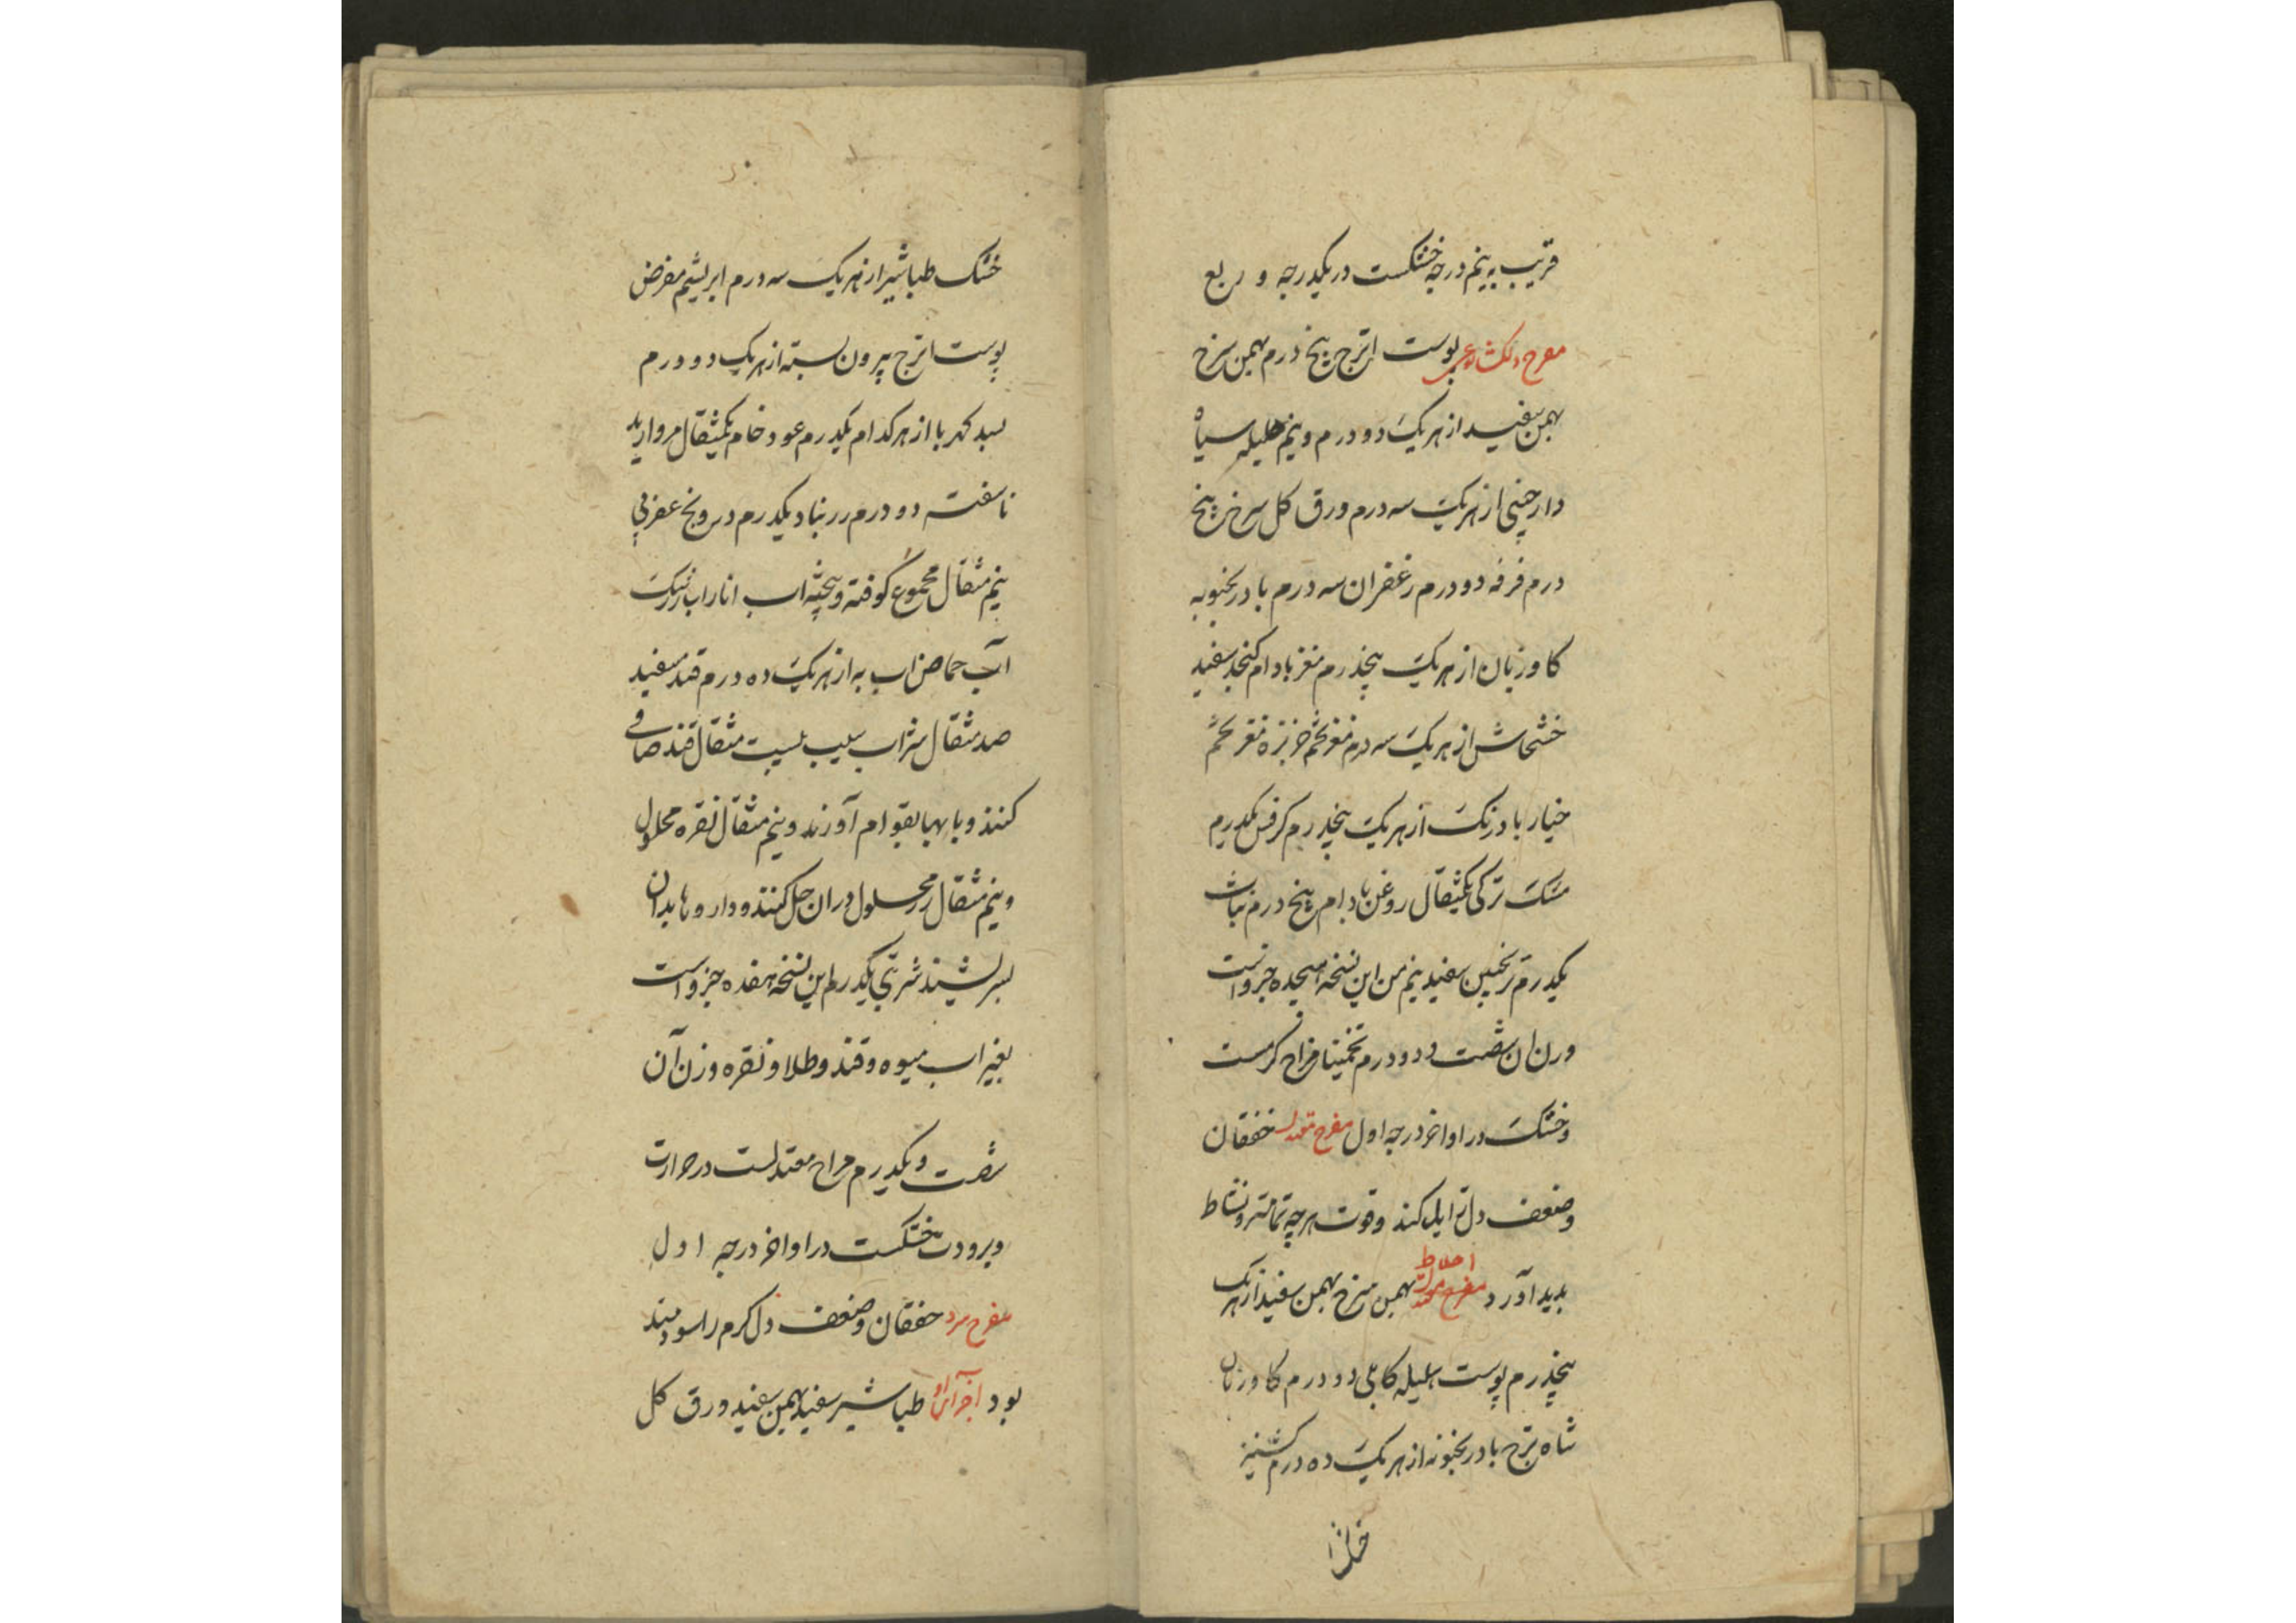 قریب به نیم درجه خشکست در یکدرجه و ربع
مفرح دلکشا پوست اترج پنج درم بهمن سرخ
بهمن سفید از هریک دو درم و نیم هلیله سیاه
دارچینی از هریک سه درم ورق کل سرخ پنج
درم فرفه دو درم زعفران سه درم بادرنجبویه
کاوزبان از هریک پنجدرم مغز بادام کنجد سفید
خشخاش از هریک سه درم مغز تخم خربزه مغز تخم
خیار بادرنک از هریک پنجدرم کرفس یکدرم
مشک ترکی یکمثقال روغن بادام پنج درم نبات
یکدرم ترنجبین سفید نیم من این نسخه هیجده جزو است
وزن ان شصت و دو درم تخمینا مزاج کرمست
و خشک در اواخر درجه اول مفرح معتدل خفقان
و ضعف دل زایل کند و قوت هرچه تمامتر و نشاط
بدید آورد اخلاط مفرح معتدل بهمن سرخ بهمن سفید از هریک
پنجدرم پوست هلیله کابلی دو درم کاوزبان
شاه ترج بادرنجبویه از هریک ده درم کشنیز
خشک
خشک طباشیر از هریک سه درم ابریشم مقرض
پوست اترج بیرون پسته از هریک دو درم
بسد کهربا از هرکدام یکدرم عود خام یکمثقال مروارید
ناسفته دو درم زرنباد یکدرم درونج عقربی
نیم مثقال مجموع کوفته و بیخته اب انار اب زرشک
آب حماض اب به از هریک ده درم قند سفید
صد مثقال شراب سیب بیست مثقال قند صافی
کنند و با بها بقوام آورند و نیم مثقال نقره محلول
و نیم مثقال زر محلول دران حل کنند و داروها بدان
بسرشند شربتی یکدرم این نسخه هفده جزو است
بغیر اب میوه و قند و طلا و نقره وزن آن
شصت و یکدرم مزاج معتدلست در حرارت
و برودت خشکست در اواخر درجه اول
مفرح سرد خفقان و ضعف دل کرم را سودمند
بود اجزاء او طباشیر سفید بهمن سفید ورق کل